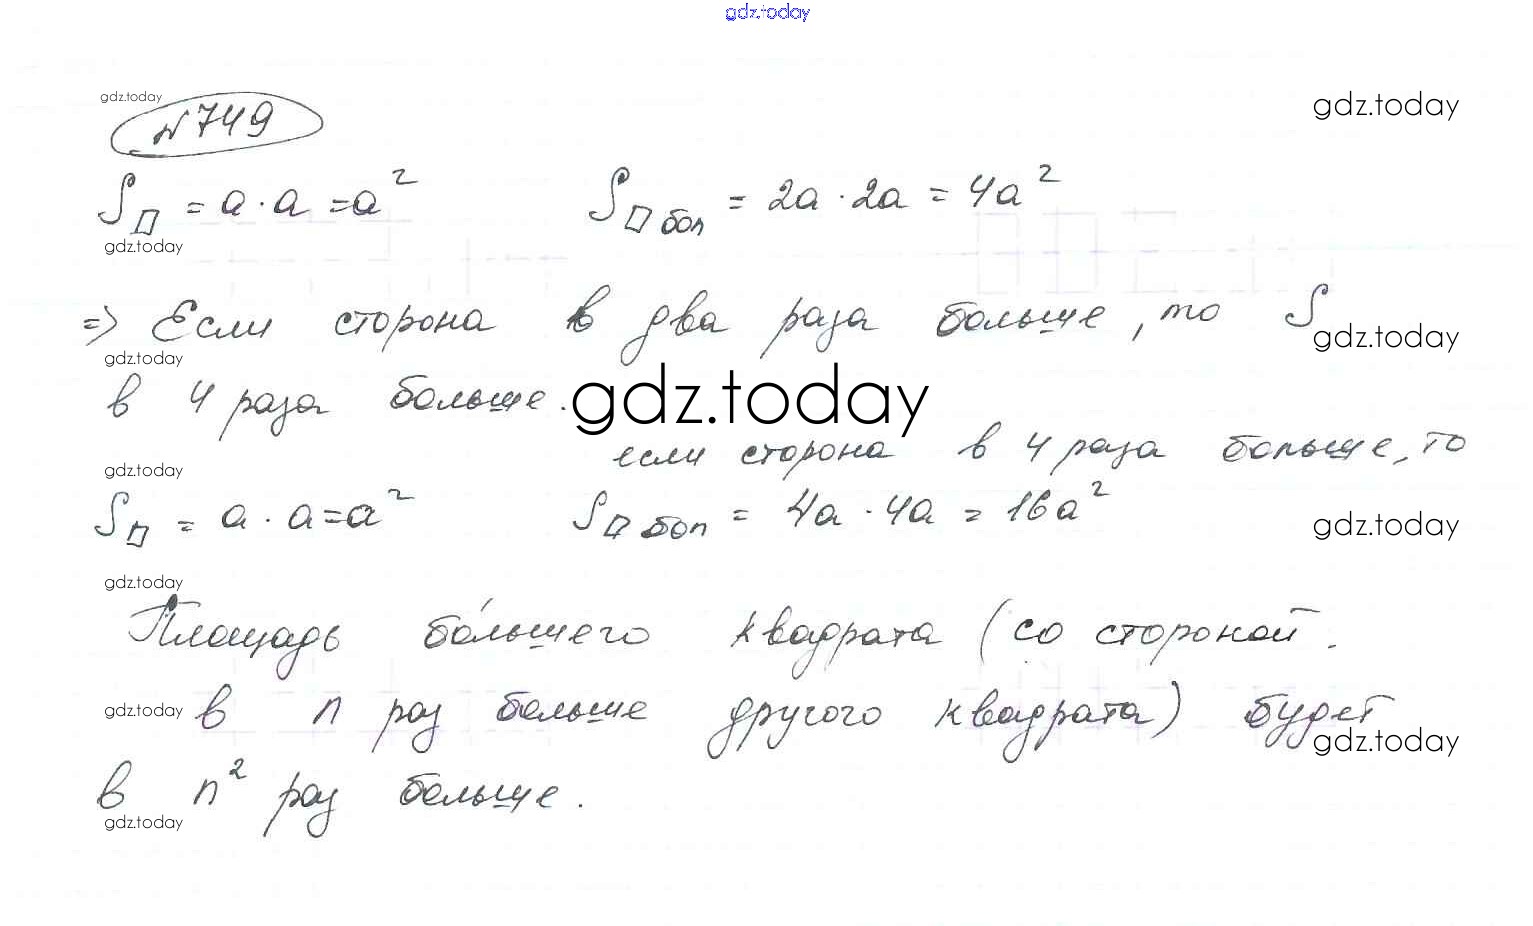 gdz.today
gdz.today
gdz.today
№749
S□ = a · a = a²    S□ бол = 2a · 2a = 4a²
gdz.today
=> Если сторона в два раза больше, то S
gdz.today
gdz.today
в 4 раза больше.
gdz.today
если сторона в 4 раза больше, то
gdz.today
S□ = a · a = a²    S□ бол = 4a · 4a = 16a²
gdz.today
gdz.today
Площадь бо́льшего квадрата (со стороной
gdz.today в n раз больше другого квадрата) будет
gdz.today
в n² раз больше.
gdz.today